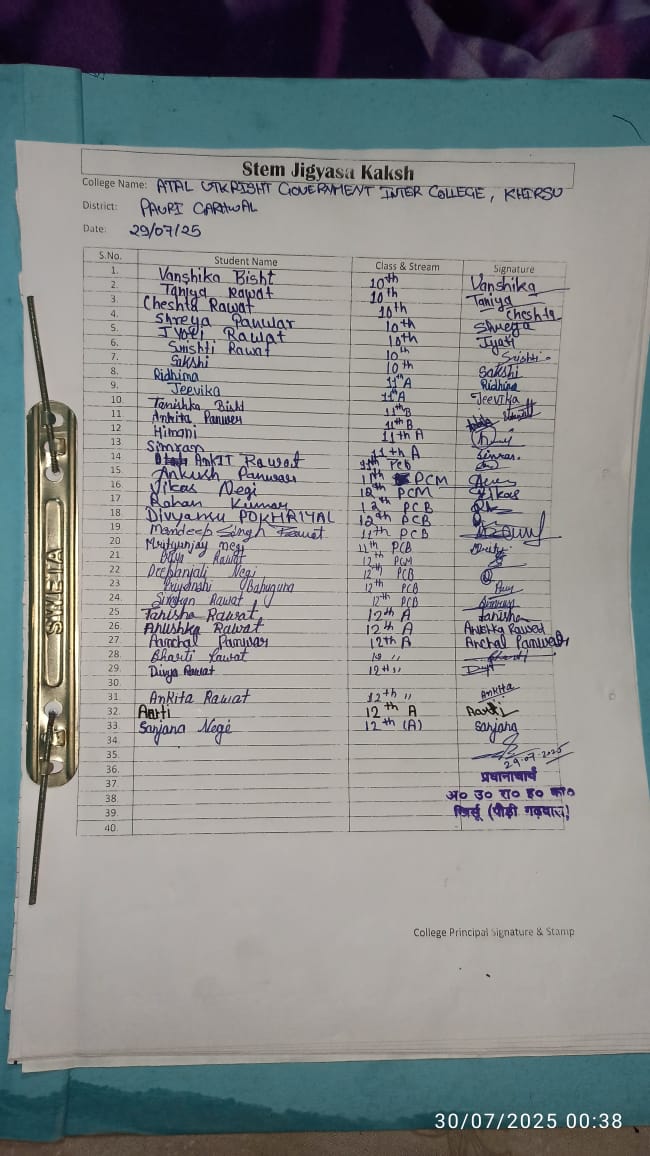 Stem Jigyasa Kaksh
College Name: ATAL UTKRISHT GOVERNMENT INTER COLLEGE, KHIRSU
District: PAURI GARHWAL
Date: 29/07/25
S.No. Student Name Class & Stream Signature
1. Vanshika Bisht 10th Vanshika
2. Taniya Rawat 10th Taniya
3. Cheshta Rawat 10th Cheshta
4. Shreya Panwar 10th Shreya
5. Jyoti Rawat 10th Jyoti
6. Srishti Rawat 10th Srishti
7. Sakshi 10th Sakshi
8. Ridhima 11th A Ridhima
9. Jeevika 11th A Jeevika
10 Tanishka Bisht 11th B
11 Ankita Panwer 11th B
12 Himani 11th A
13 Simran 11th A Simran.
14 AnkIT Rawat 11th PCB
15. Ankush Panwar 11th PCM
16 Vikas Negi 12th PCM Vikas
17 Rohan Kumar 12th PCB
18 Divyansu POKHRIYAL 12th PCB
19 Mandeep Singh Rawat 11th PCB
20 Mrityunjay negi 11th PCB
21 Rawat 12th PCM
22 Deepanjali Negi 12th PCB
23 Priyanshi Bahuguna 12th PCB
24. Simran Rawat 12th PCB
25 Tanisha Rawat 12th A Tanisha
26. Anushka Rawat 12th A Anushka Rawat
27. Aanchal Panwar 12th A Anchal Panwar
28. Bharti Rawat 12 ,, Bharti
29. Divya Rawat 12th ,,
30.
31 Ankita Rawat 12th ,, Ankita
32. Aarti 12th A Aarti
33. Sanjana Negi 12th (A) Sanjana
34.
35. 29-07-2025
36. प्रधानाचार्य
37.
38. अ० उ० रा० इ० का०
39. खिर्सू (पौड़ी गढ़वाल)
40.
College Principal Signature & Stamp
SWETA
30/07/2025 00:38